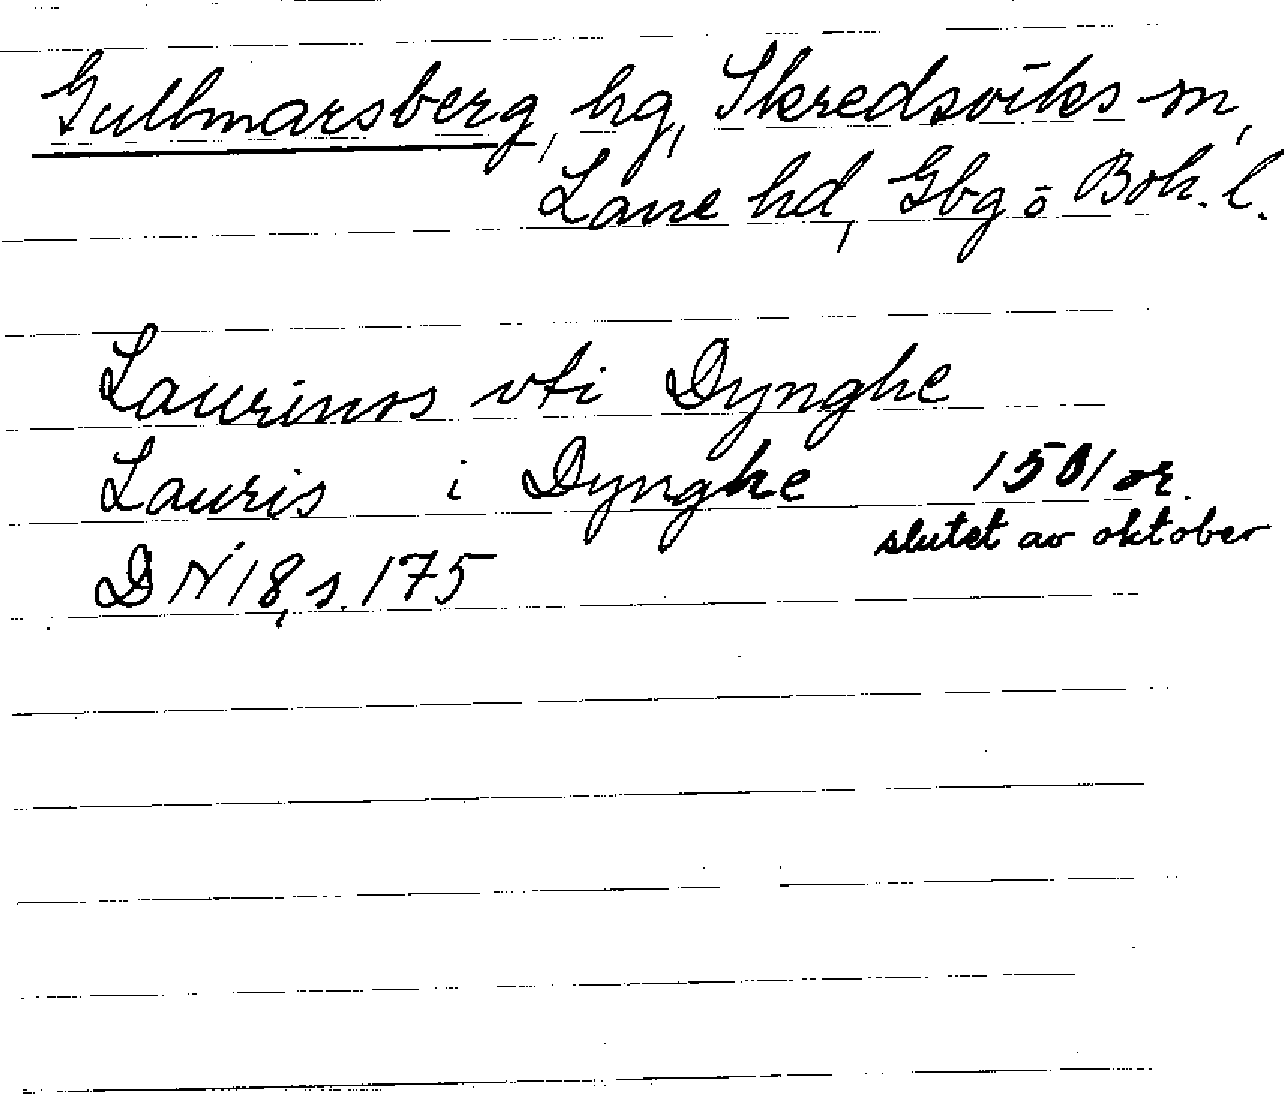 Gullmarsberg, hg, Skredsviks sn,
Lane hd, Gbg o Boh. l.
Laurinus vti Dynghe
Lauris i Dynghe 1501 or.
slutet av oktober
DN 18, s. 175